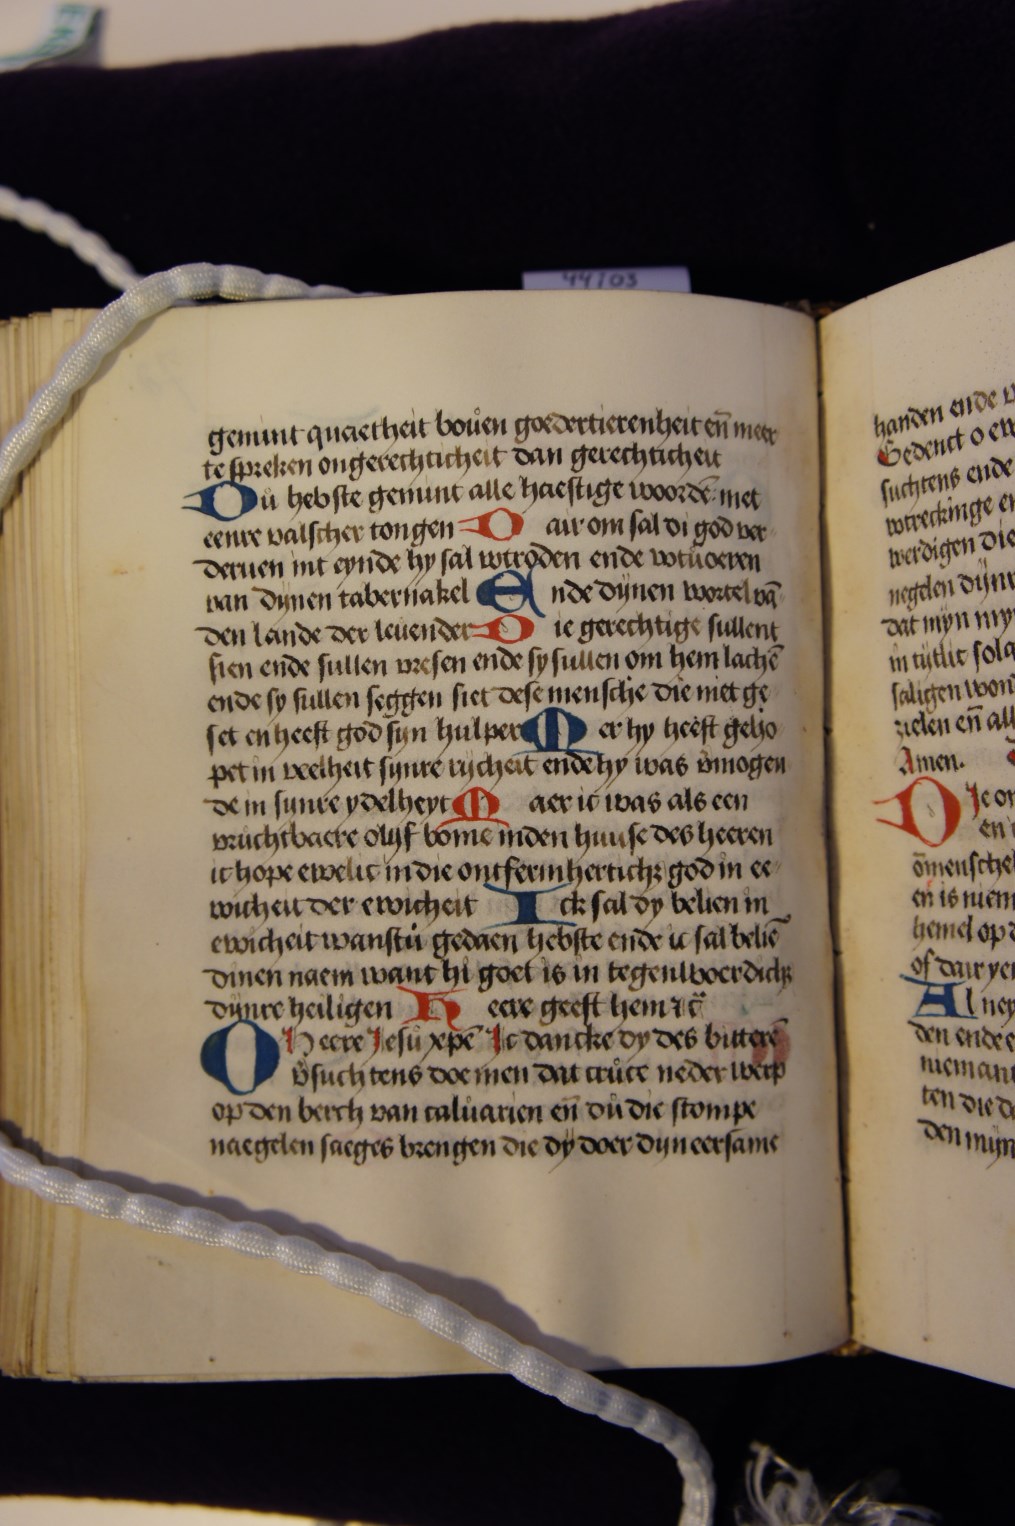 44103
gemint quaetheit bouen goedertierenheit en̄ meer
te spreken ongerechticheit dan gerechticheit
Du hebste gemint alle haestige woordē met
eenre valscher tongen Dair om sal di god ver
deruen int eynde hy sal wtroden ende wtuoeren
van dynen tabernakel Ende dynen wortel vā
den lande der leuender Die gerechtige sullent
sien ende sullen vresen ende sy sullen om hem lachē
ende sy sullen seggen siet dese mensche die niet ge
set en heeft god syn hulper Mer hy heeft geho
pet in veelheit synre rijcheit ende hy was v̄mogen
de in synre ydelheyt Maer ic was als een
vruchtbaere olijf bome in den huuse des heeren
ic hope ewelic in die ontfermherticheȝ god in ee
wicheit der ewicheit Ick sal dy belien in
ewicheit wanstu gedaen hebste ende ic sal beliē
dinen naem want hi goet is in tegenwoerdicheȝ
dynre heiligen Heere geeft hem ⁊c̄
O Heere Jesu xpē Ic dancke dy des bitterē
v̄suchtens doe men dat cruce neder werp
op den berch van caluarien en̄ du die stompe
naegelen saeges brengen die dy doer dyn eersame
handen ende
Gedenct o
suchtens ende
wtreckinge
werdigen die
negelen dynr
dat myn
in tytlic
saligen
zielen en̄ all
Amen.
Die
en
ōmensche
en is niem
hemel op
of dair
Al
den ende
nieman
ten die
den myn